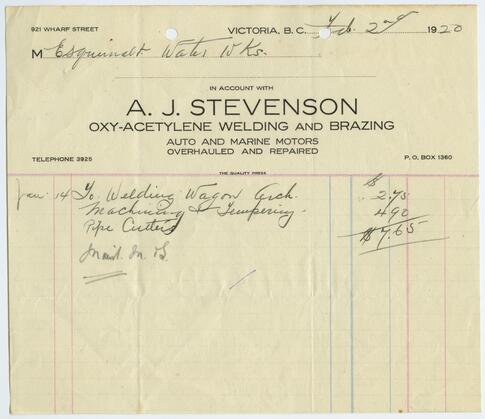 921 WHARF STREET
VICTORIA, B. C. Feb. 2nd 1920
M Esquimalt Water Wks.
IN ACCOUNT WITH
A. J. STEVENSON
OXY-ACETYLENE WELDING AND BRAZING
AUTO AND MARINE MOTORS
OVERHAULED AND REPAIRED
TELEPHONE 3925
P. O. BOX 1360
THE QUALITY PRESS
Jan. 14 To Welding Wagon Arch. $ 2.75
Machining & Tempering 4.90
Pipe Cutters $7.65